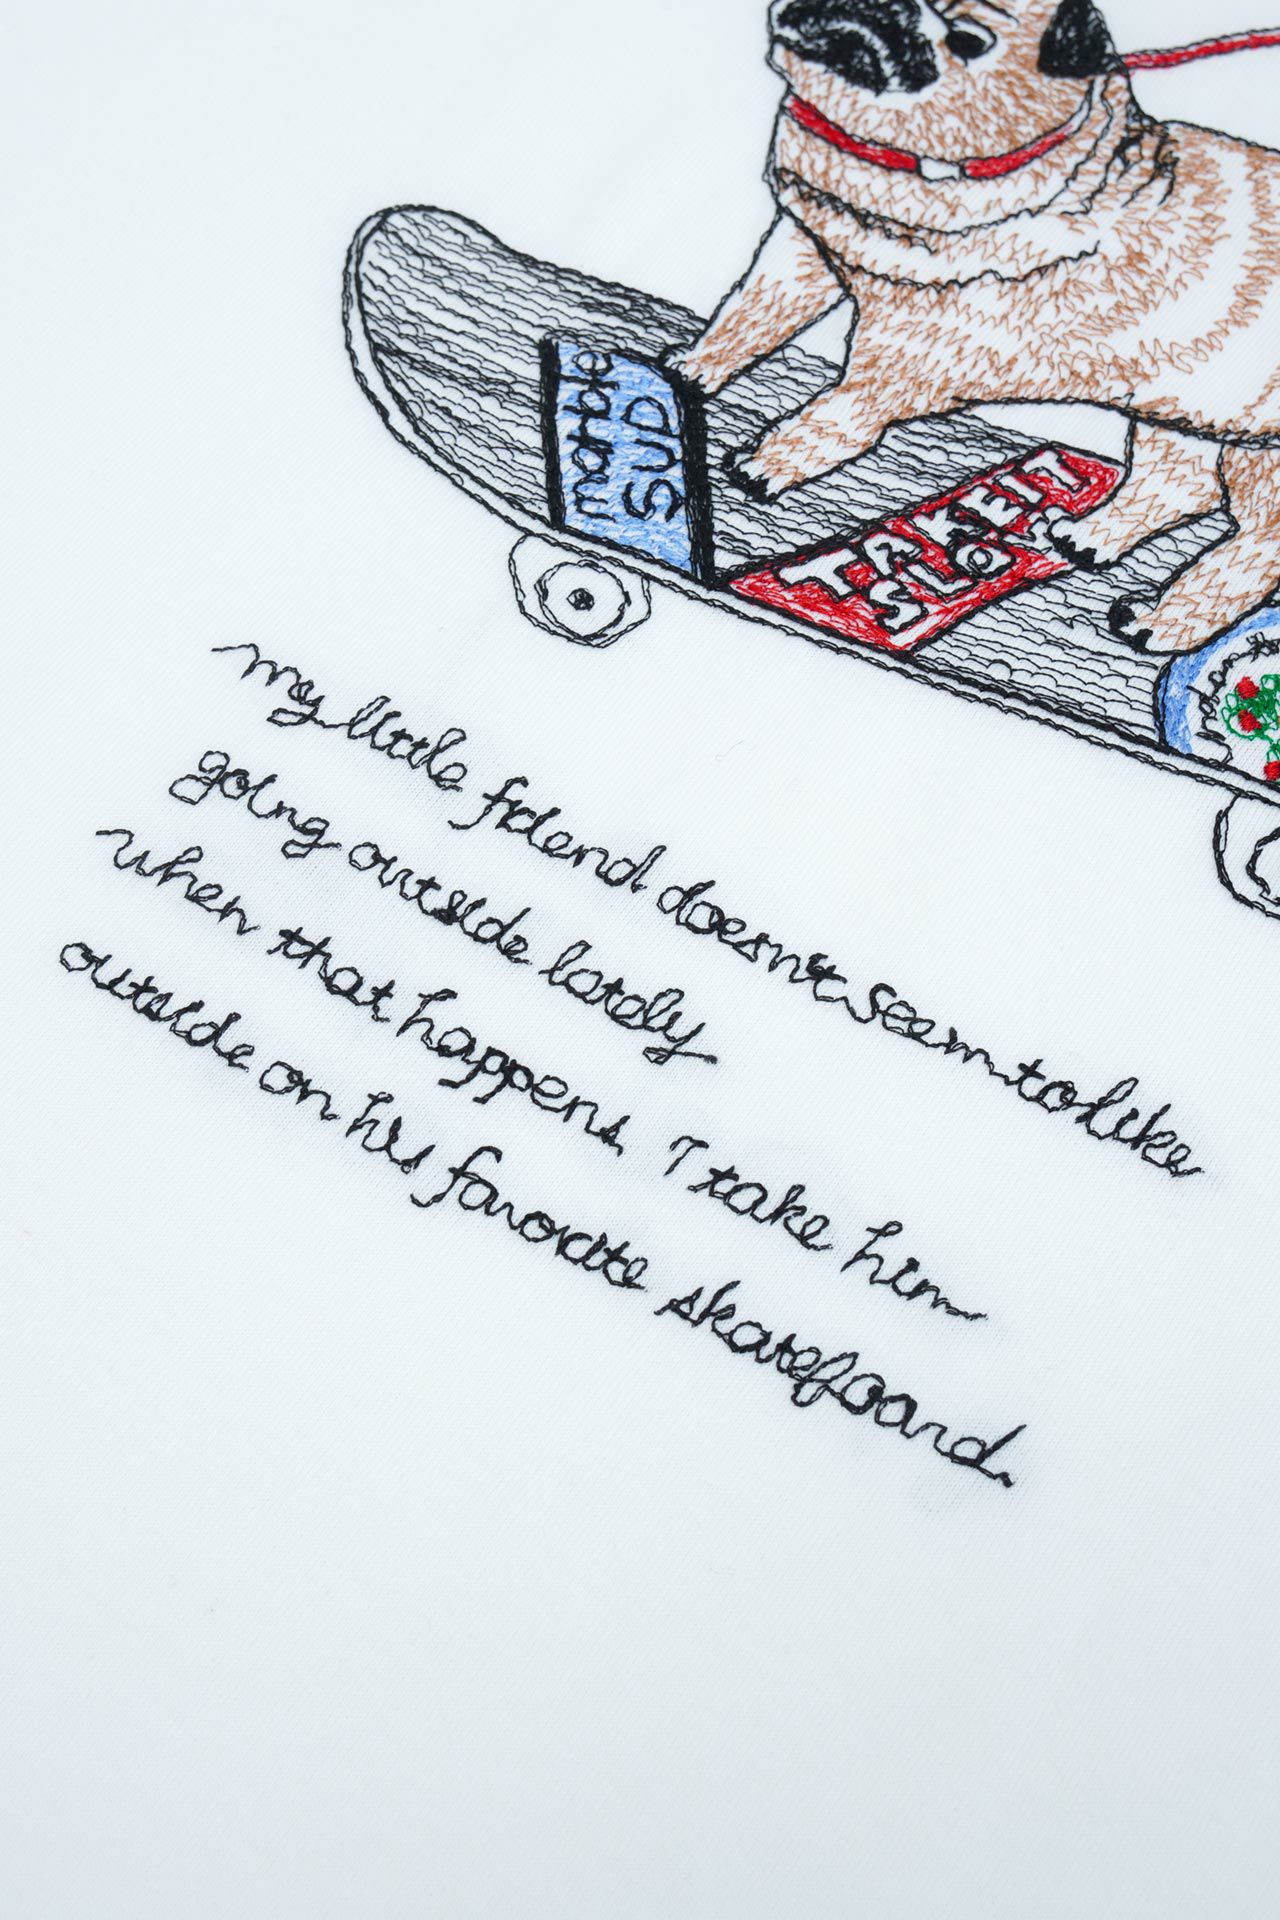 marble
SUD
TAKE IT
SLOW
my little friend doesn't seem to like
going outside lately
when that happens, I take him
outside on his favorite skateboard.